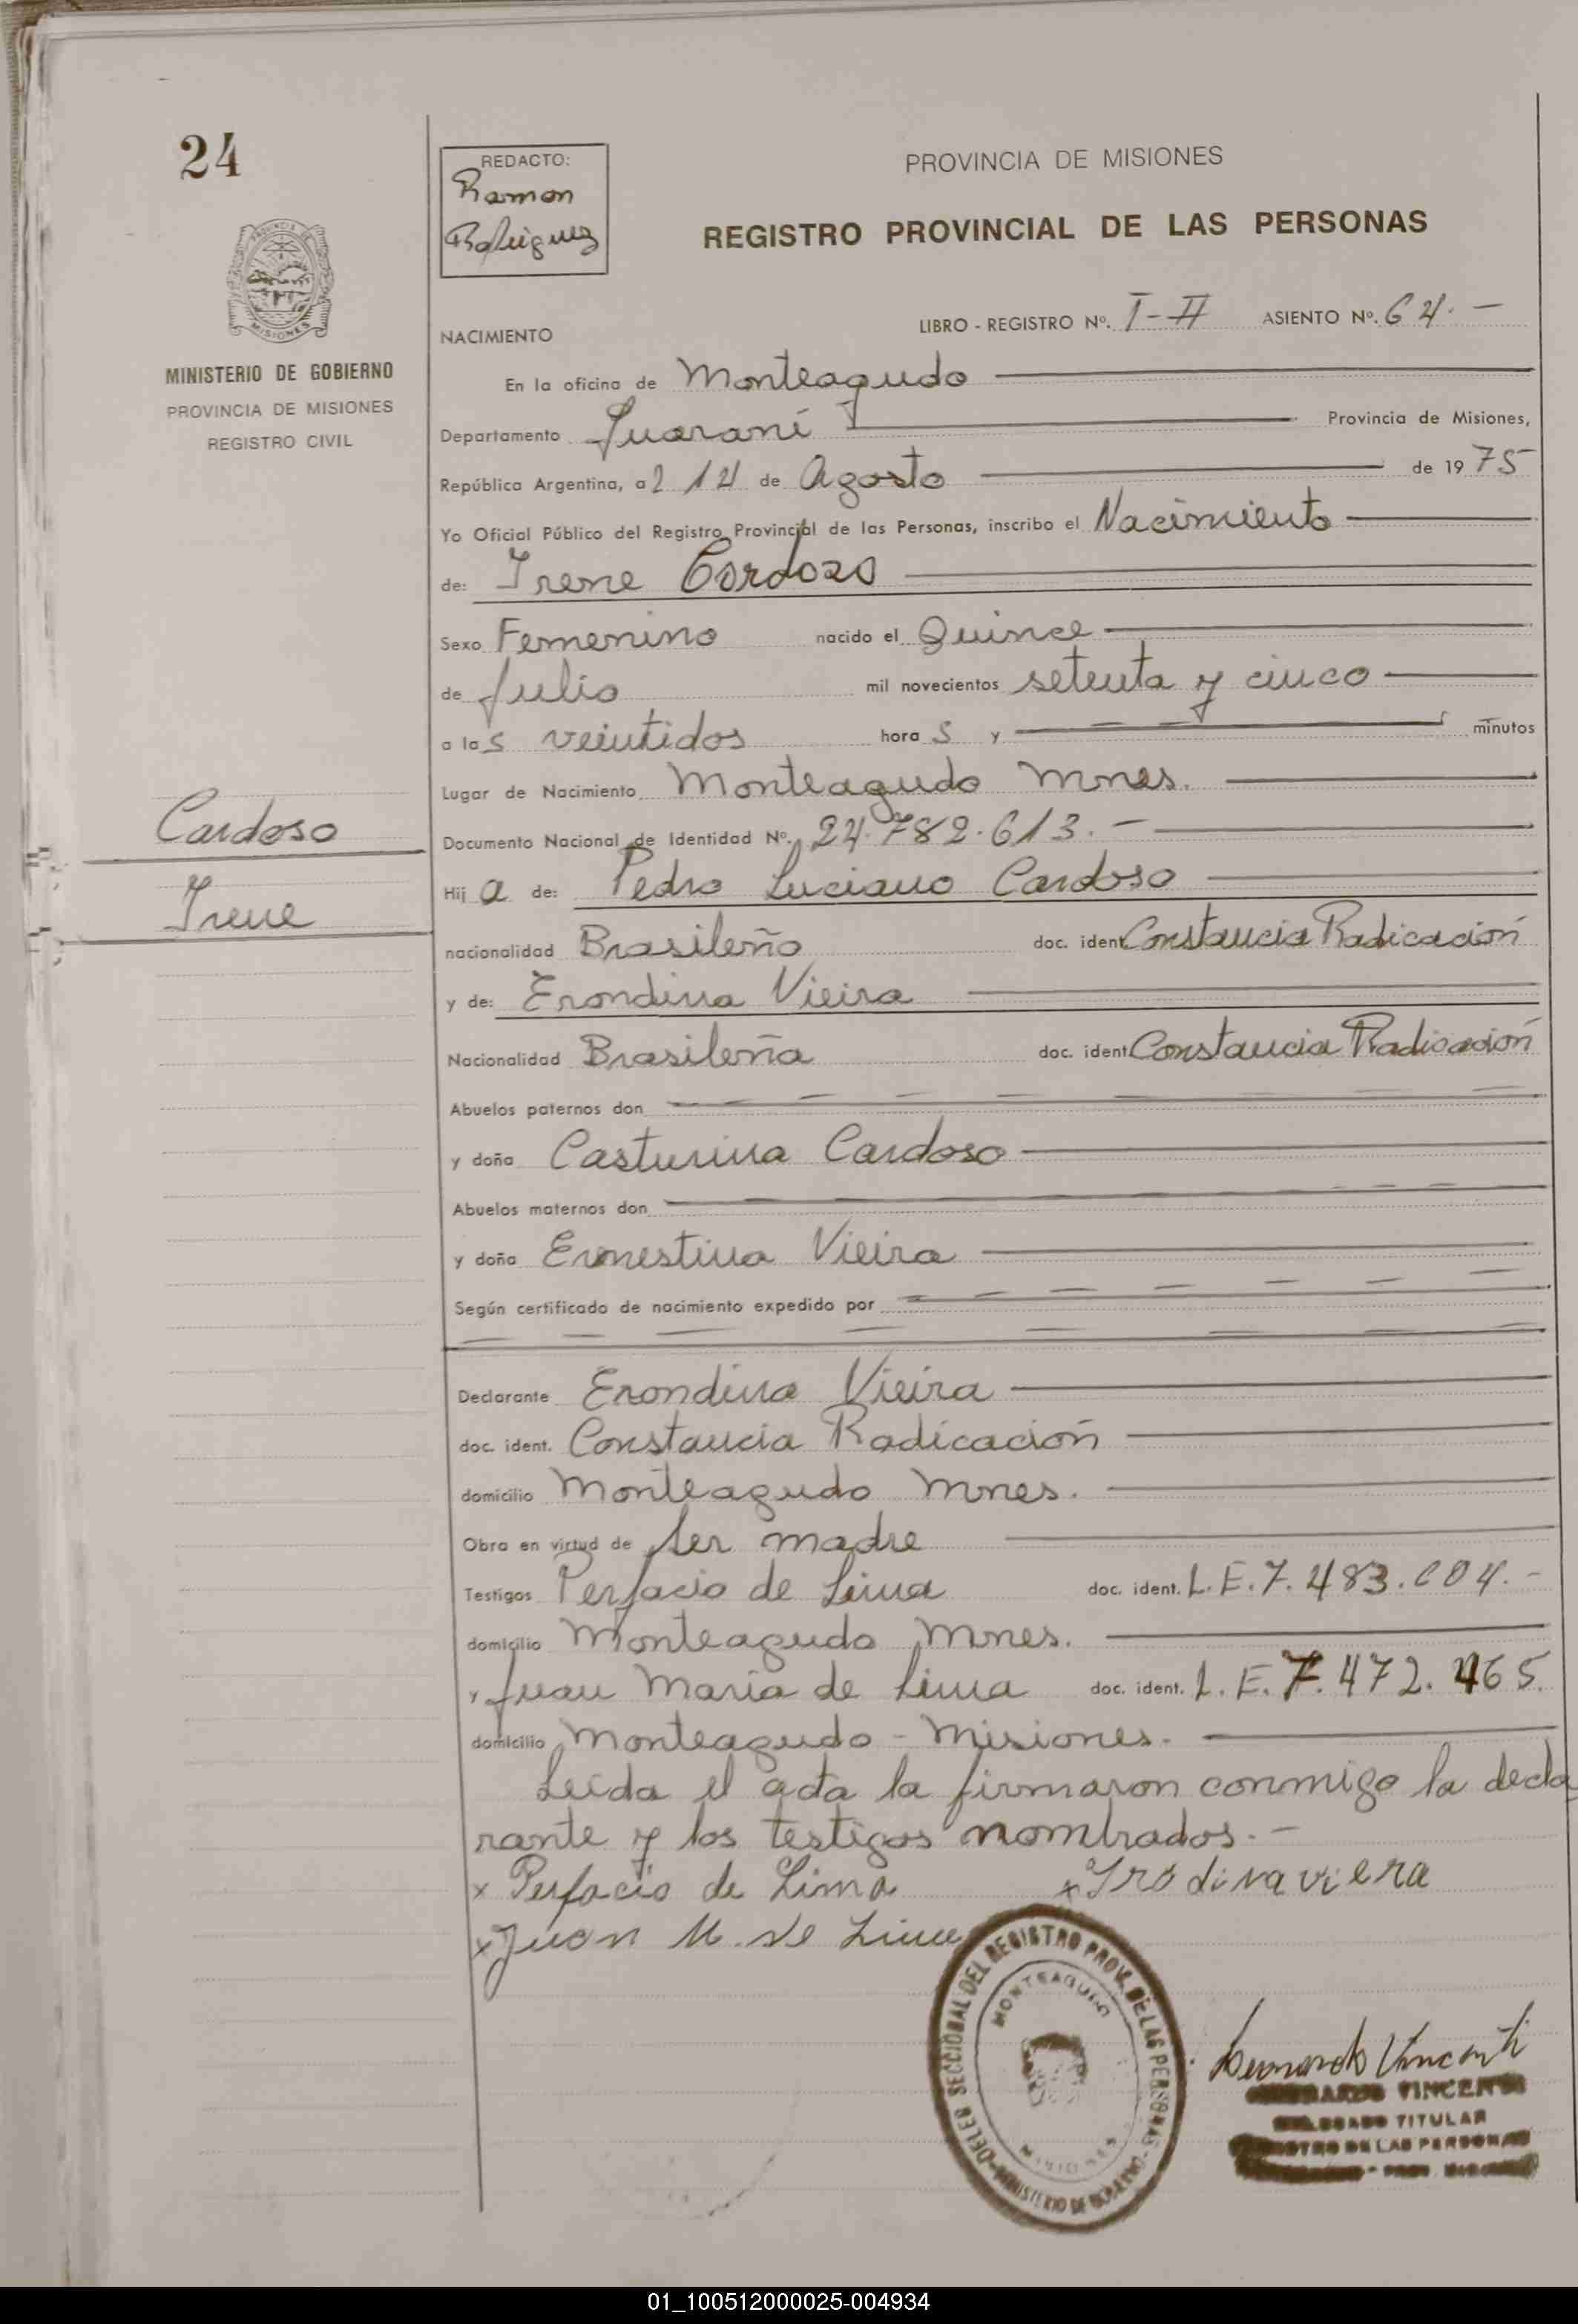 24
REDACTO:
Ramon
Rodriguez
PROVINCIA DE MISIONES
REGISTRO PROVINCIAL DE LAS PERSONAS
PROVINCIA DE
MISIONES
MINISTERIO DE GOBIERNO
PROVINCIA DE MISIONES
REGISTRO CIVIL
NACIMIENTO
LIBRO - REGISTRO Nº. I-II ASIENTO Nº. 64.-
En la oficina de Monteagudo
Departamento Guaraní Provincia de Misiones,
República Argentina, a de Agosto de 1975
Yo Oficial Público del Registro Provincial de las Personas, inscribo el Nacimiento
de: Irene Cardozo
Sexo Femenino nacido el Quince
de Julio mil novecientos setenta y cinco
a las veintidos horas y minutos
Lugar de Nacimiento Monteagudo Mnes.
Documento Nacional de Identidad Nº. 24.782.613.-
Cardoso
Irene
Hija de: Pedro Luciano Cardoso
nacionalidad Brasileño doc. ident Constancia Radicación
y de: Erondina Vieira
Nacionalidad Brasileña doc. ident Constancia Radicación
Abuelos paternos don
y doña Casturina Cardoso
Abuelos maternos don
y doña Ernestina Vieira
Según certificado de nacimiento expedido por
Declarante Erondina Vieira
doc. ident. Constancia Radicación
domicilio Monteagudo Mnes.
Obra en virtud de ser madre
Testigos Perfacio de Lima doc. ident. L.E.7.483.004.-
domicilio Monteagudo Mnes.
y Juan Maria de Lima doc. ident. L.E.7.472.465.
domicilio Monteagudo - Misiones.
Leída el acta la firmaron conmigo la decla
rante y los testigos nombrados.-
x Perfacio de Lima x Irodina viera
x Juan M. de Lima
SECCIONAL DEL REGISTRO PROV. DE LAS PERSONAS
MONTEAGUDO
MISIONES
MINISTERIO DE GOBIERNO
Vincenti
VINCENTI
DELEGADO TITULAR
REGISTRO DE LAS PERSONAS
01_100512000025-004934